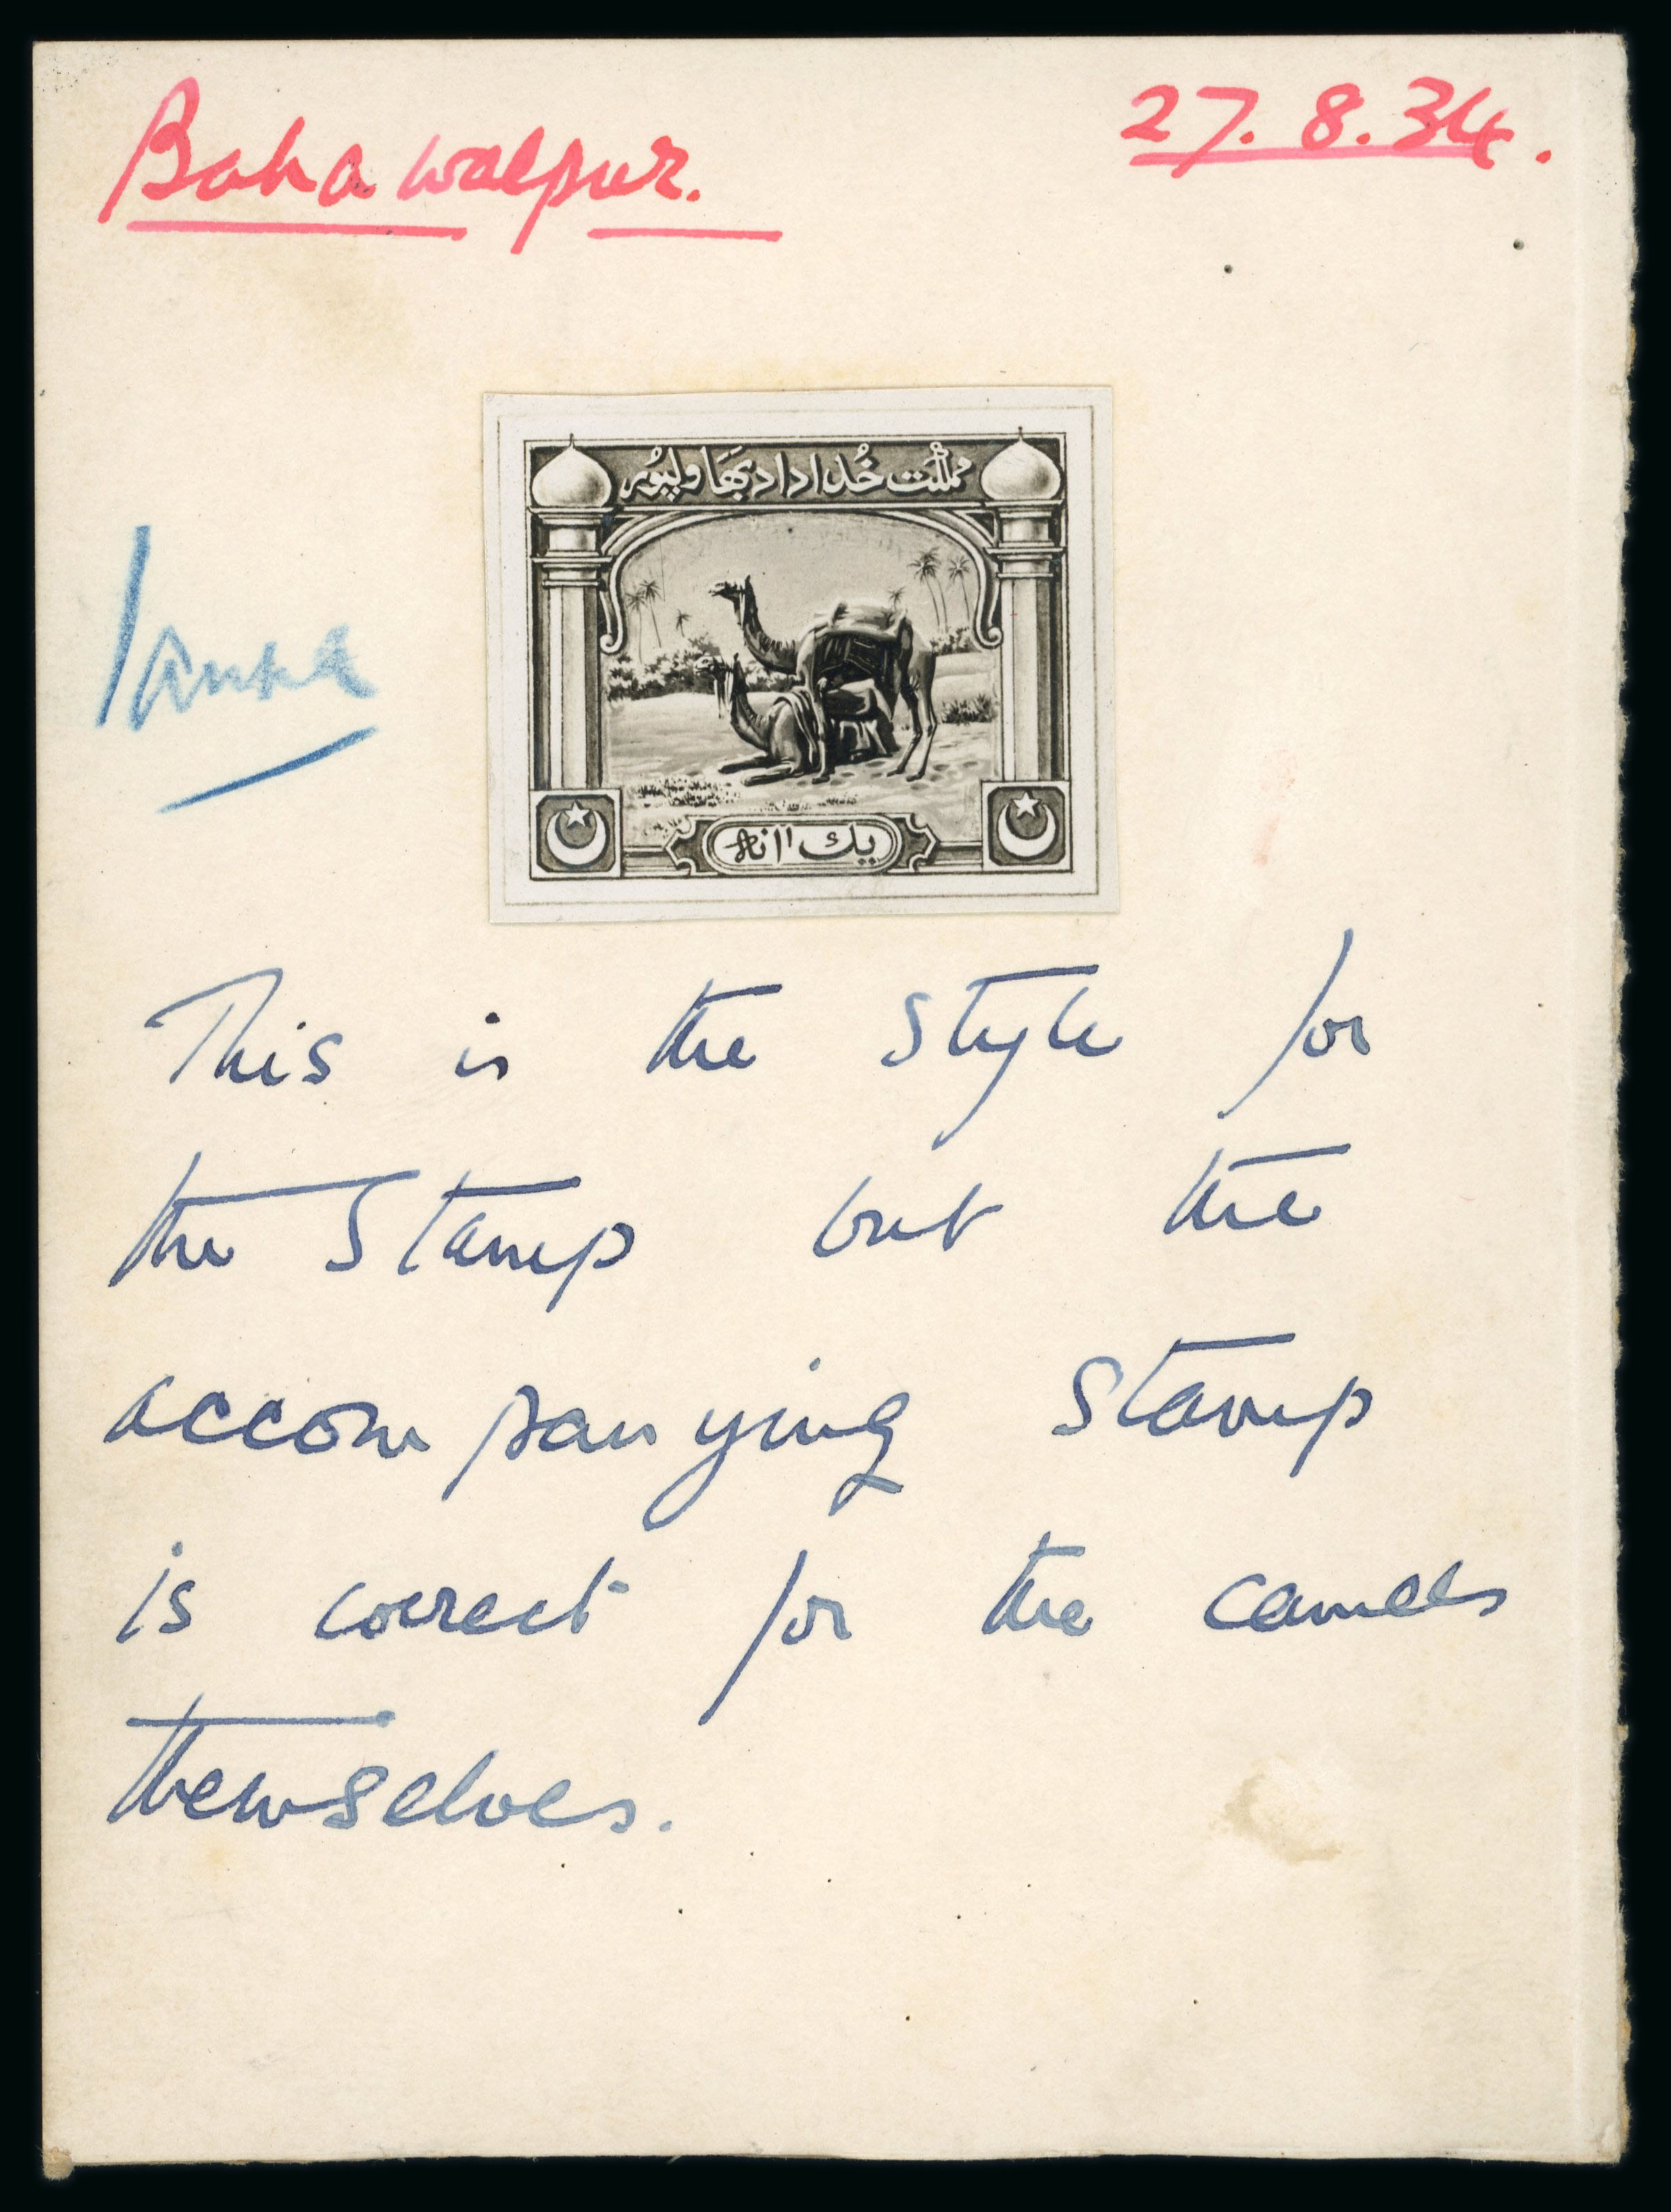 Bahawalpur.
27.8.34.
مملکت خُداداد بَہَاولپُور
1 anna
یك آنہ
This is the style for
the Stamp but the
accompanying Stamp
is correct for the camels
themselves.